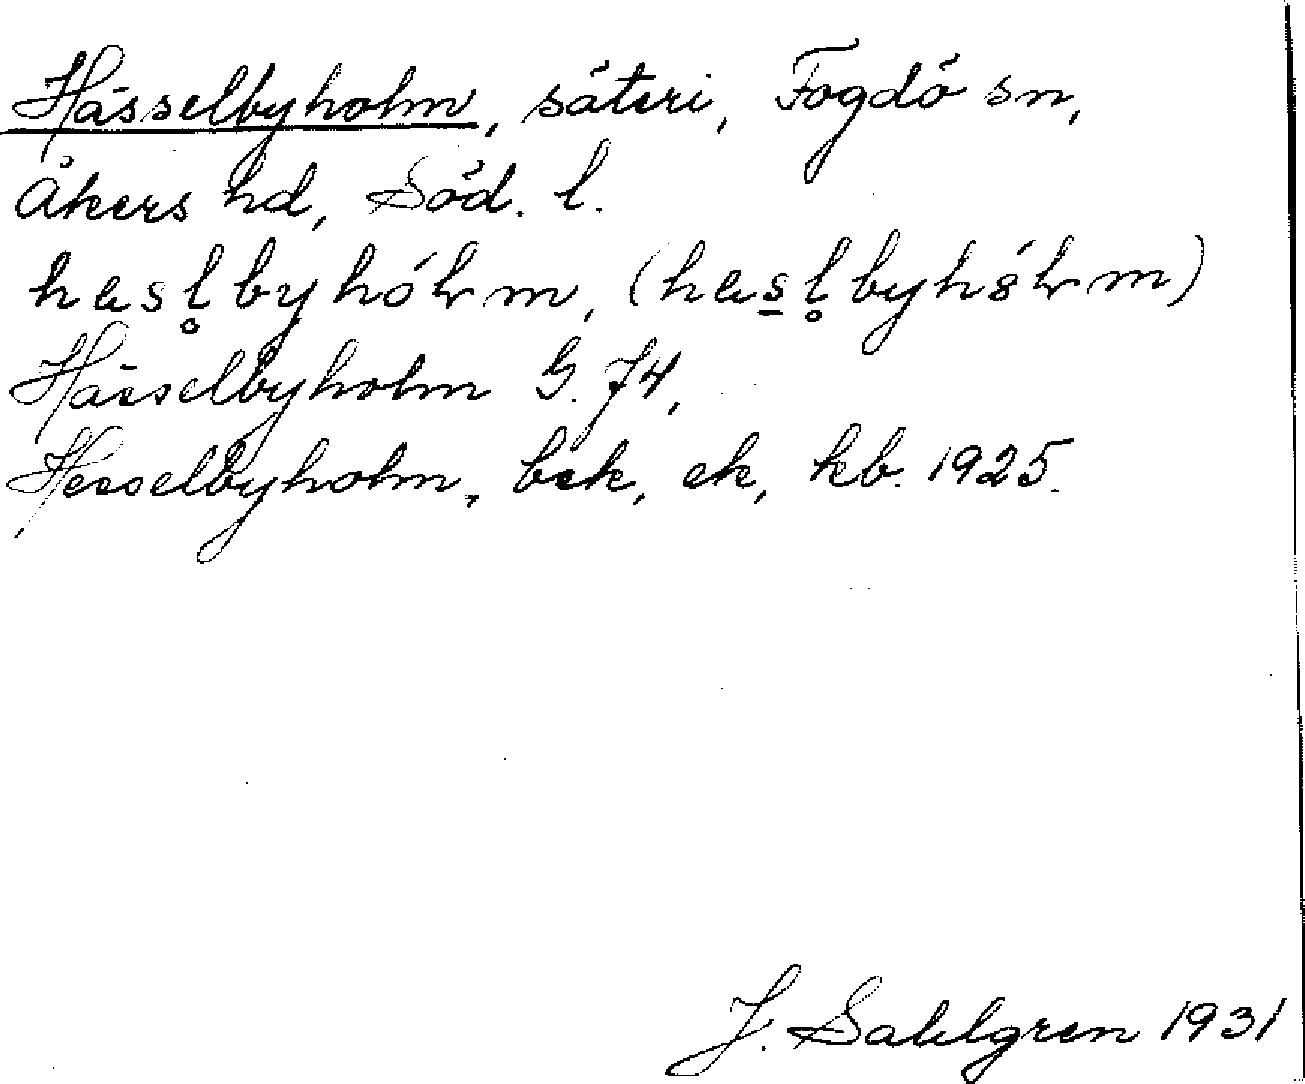 Hässelbyholm, säteri, Fogdö sn,
Åkers hd, Söd. l.
hasl̥byhólm, (has̲l̥byhólm)
Hässelbyholm G. J4,
Hesselbyholm, bek, ek, kb. 1925.
J. Sahlgren 1931